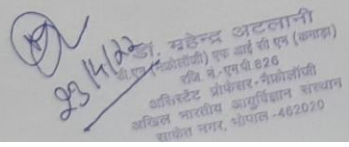 23/4/22
डा. महेन्द्र अटलानी
डी.एम (नेफ्रोलॉजी) एफ आई सी एन (कनाडा)
रजि नं.-एमपी 826
असिस्टेंट प्रोफेसर-नैफ्रोलॉजी
अखिल भारतीय आयुर्विज्ञान संस्थान
साकेत नगर, भोपाल-462020